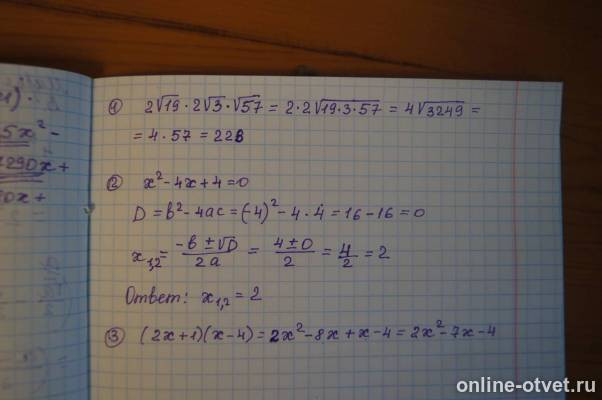 1) .
5x² -
1290x +
0x +
① 2√19 · 2√3 · √57 = 2 · 2√19·3·57 = 4√3249 =
= 4 · 57 = 228
② x² - 4x + 4 = 0
D = b² - 4ac = (-4)² - 4 · 4 = 16 - 16 = 0
x₁,₂ = (-b ± √D)/2a = (4 ± 0)/2 = 4/2 = 2
Ответ: x₁,₂ = 2
③ (2x+1)(x-4) = 2x² - 8x + x - 4 = 2x² - 7x - 4
online-otvet.ru